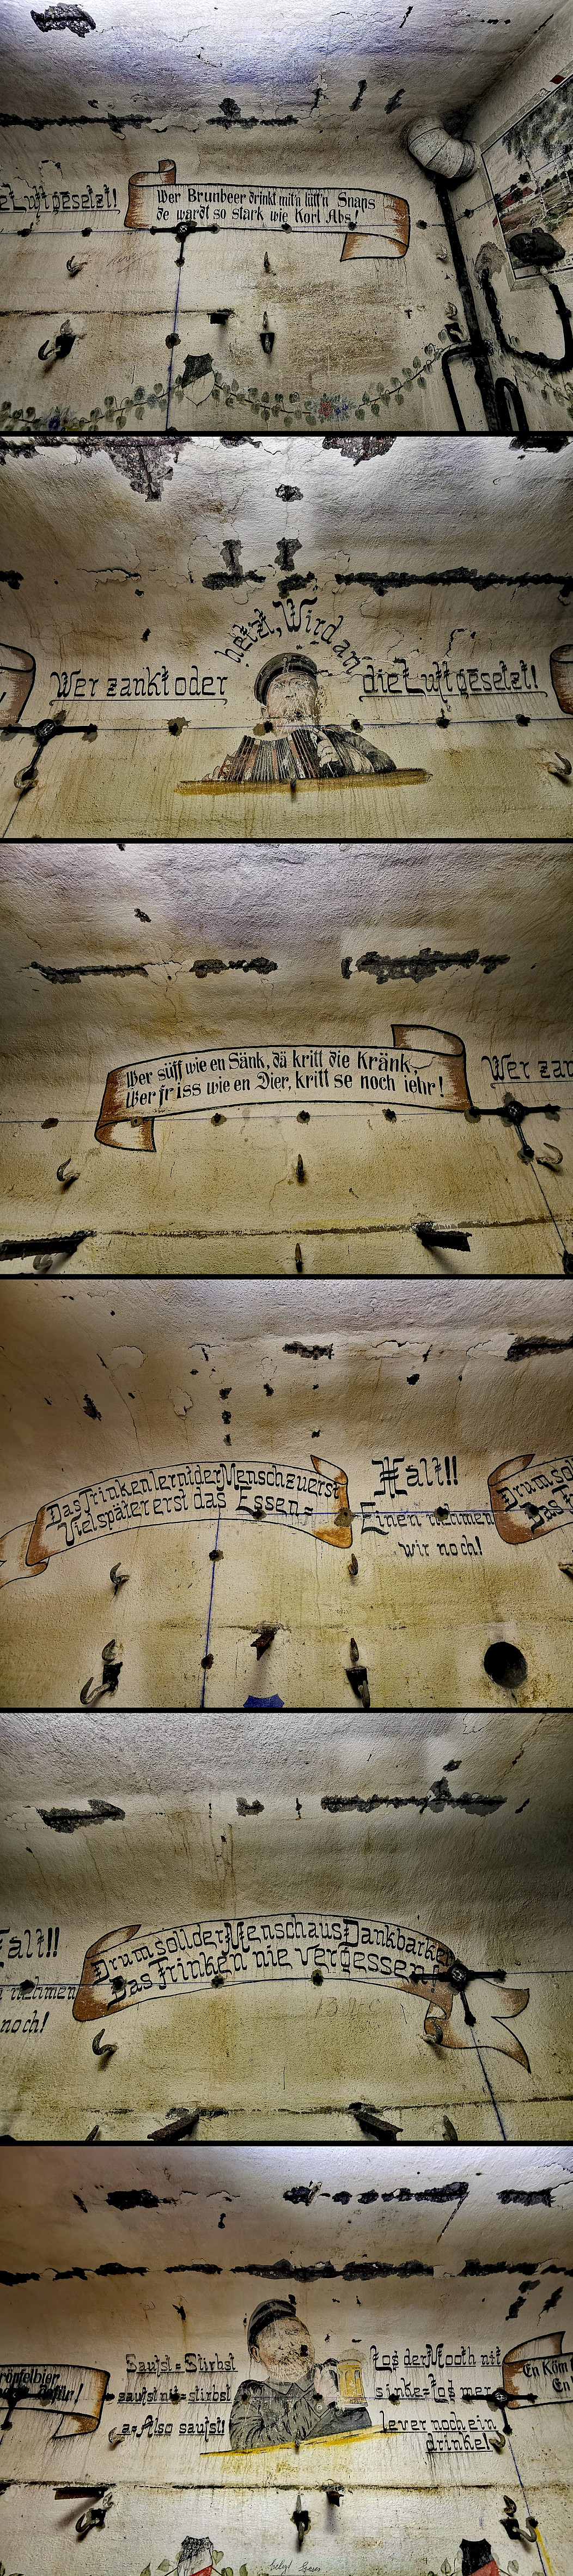 e Luft gesetzt!
Wer Brunbeer drinkt mit'n lütt'n Snaps
de wardt so stark wie Korl Abs!
Wer zankt oder hetzt, Wird an die Luft gesetzt!
Wer süff wie en Sänk, dä kritt die Kränk,
Wer friss wie en Dier, kritt se noch iehr!
Wer zan
Das Trinken lernt der Mensch zuerst
Viel später erst das Essen-
Halt!!
Einen nehmen
wir noch!
Drum sol
Das Tr
alt!!
nehmen
noch!
Drum soll der Mensch aus Dankbarkei
Das Trinken nie vergessen!
Saufst = Stirbst
saufst nit = stirbst
a = Also saufst!
Los der Mooth nit
sinke = Los mer
lever noch ein
drinke!
En Köm
En